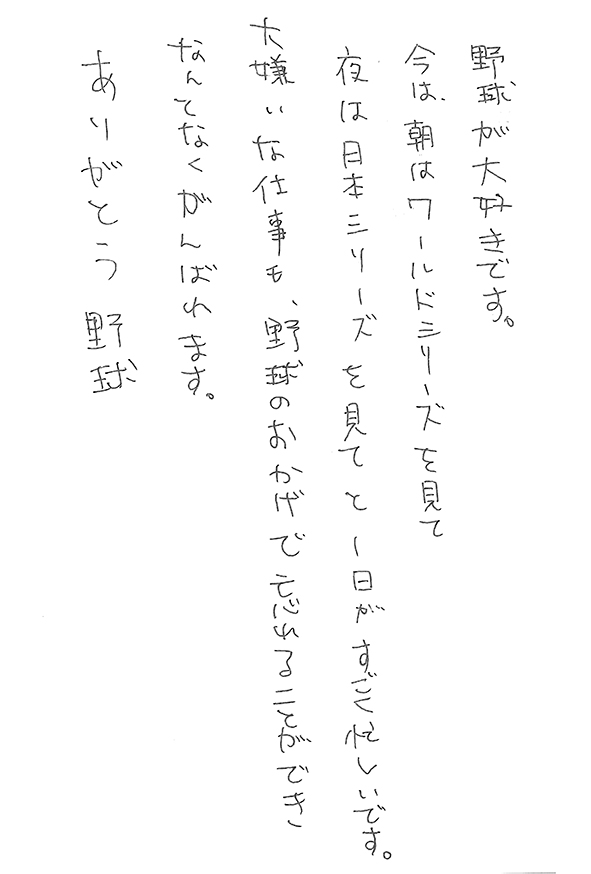 野球が大好きです。
今は、朝はワールドシリーズを見て
夜は日本シリーズを見てと一日がすごく忙しいです。
大嫌いな仕事も、野球のおかげで忘れることができ
なんてなくがんばれます。
ありがとう野球